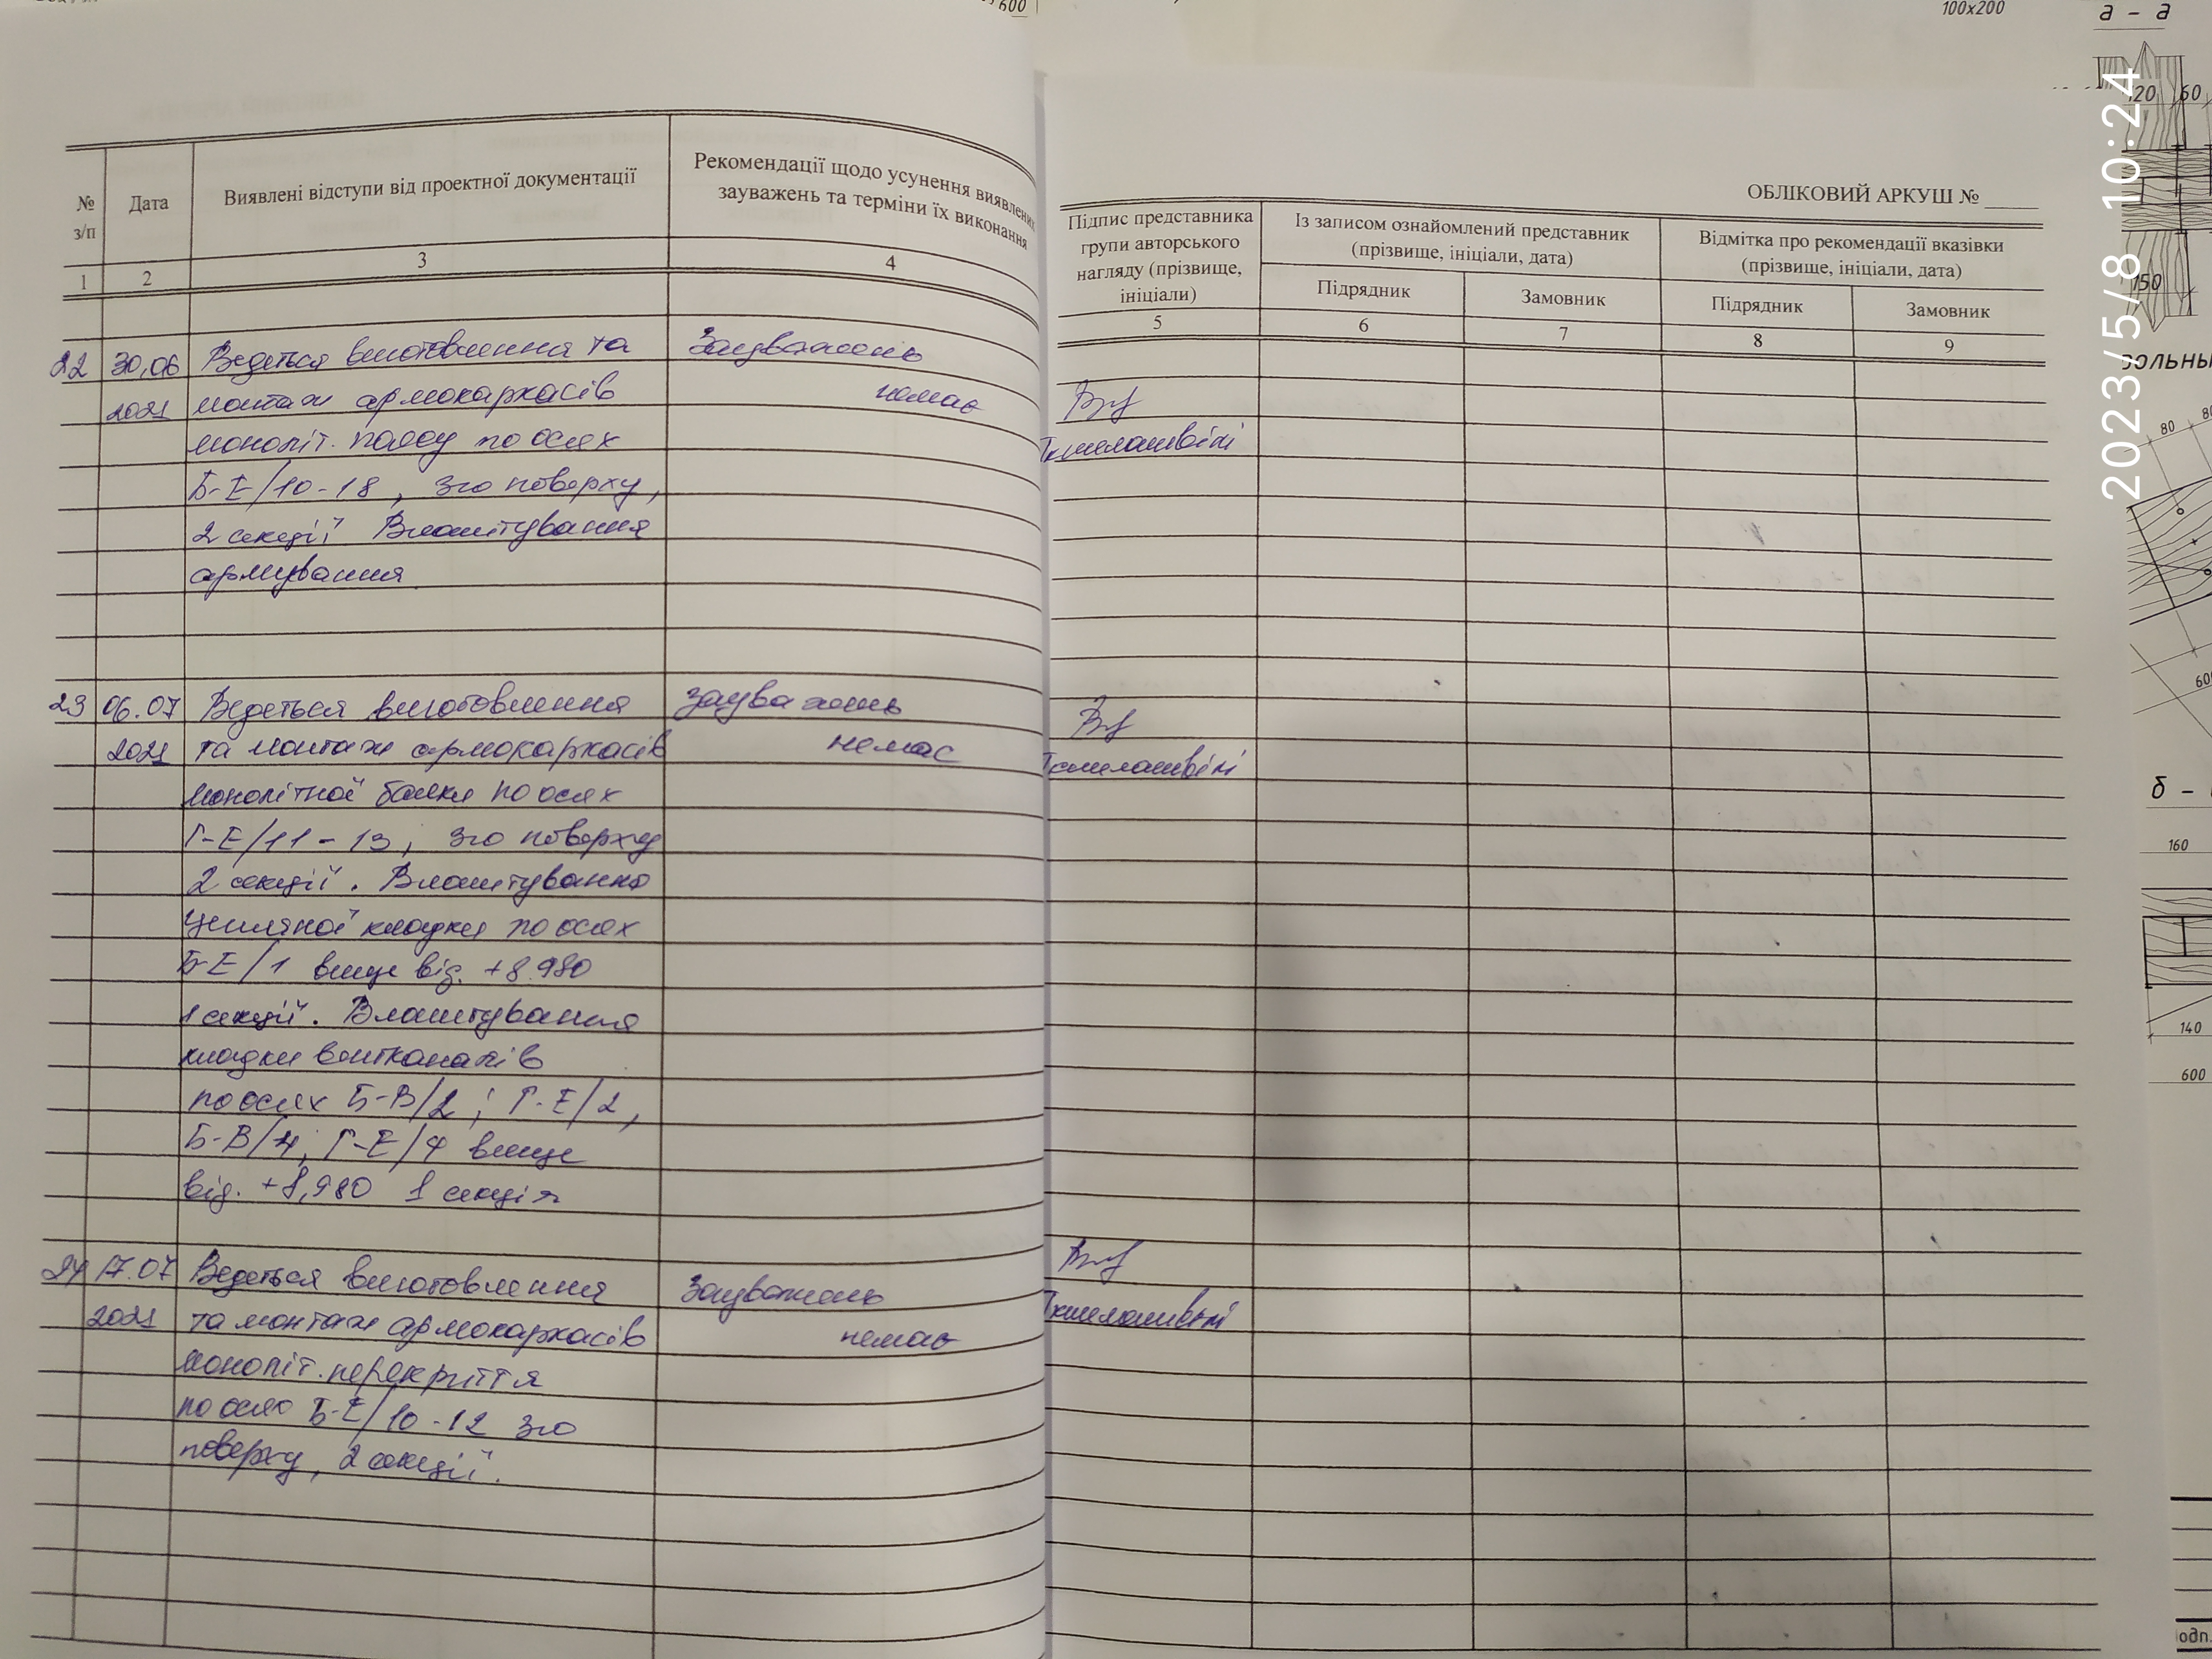 600
100х200
а - а
120
60
2023/5/8 10:24
ОБЛІКОВИЙ АРКУШ №
№ з/п
Дата
Виявлені відступи від проектної документації
Рекомендації щодо усунення виявлених
зауважень та терміни їх виконання
Підпис представника
групи авторського
нагляду (прізвище,
ініціали)
Із записом ознайомлений представник
(прізвище, ініціали, дата)
Відмітка про рекомендації вказівки
(прізвище, ініціали, дата)
Підрядник
Замовник
Підрядник
Замовник
1
2
3
4
5
6
7
8
9
22 30,06 Ведеться виготовлення та Зауважень
2021 монтаж армокаркасів немає
моноліт. поясу по осях
Б-Е/10-18, 3го поверху,
2 секції Влаштування
армування
23 06.07 Ведеться виготовлення зауважень
2021 та монтаж армокаркасів немає
монолітної балки по осях
Г-Е/11-13, 3го поверху
2 секції. Влаштування
цегляної кладки по осях
Б-Е/1 вище від. +8.980
1 секції. Влаштування
кладки вентканалів
по осях Б-В/2; Г-Е/2,
Б-В/4; Г-Е/4 вище
від. +8,980 1 секція
24 17.07 Ведеться виготовлення Зауважень
2021 та монтаж армокаркасів немає
моноліт. перекриття
по осях Б-Е/10-12 3го
поверху, 2 секції.
150
80
60
б -
160
140
600